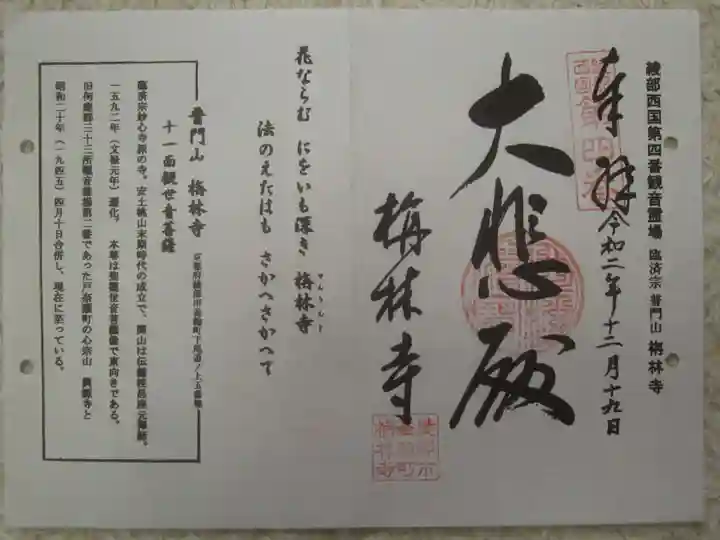 綾部西国第四番観音霊場 臨済宗 普門山 梅林寺
奉拝 令和二年十二月十九日
大悲殿
梅林寺
花ならむ にをいも深き 梅林寺
法のえたはも さかへさかへて
普門山 梅林寺
十一面観世音菩薩
臨済宗妙心寺派の寺。安土桃山末期時代の成立で、開山は
一五九二年(文禄元年)遷化。 本尊は聖観世音菩薩像で東向きである。
旧何鹿郡三十三所観音霊場第二番であった戸奈瀬町の心宗山 興源寺と
昭和二十年(一九四五)四月十日合併し、現在に至っている。